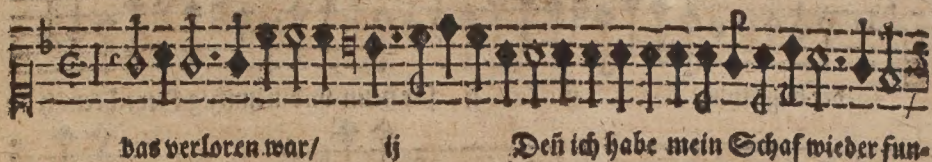 das verloren war/ ij Deñ ich habe mein Schaf wieder fun-